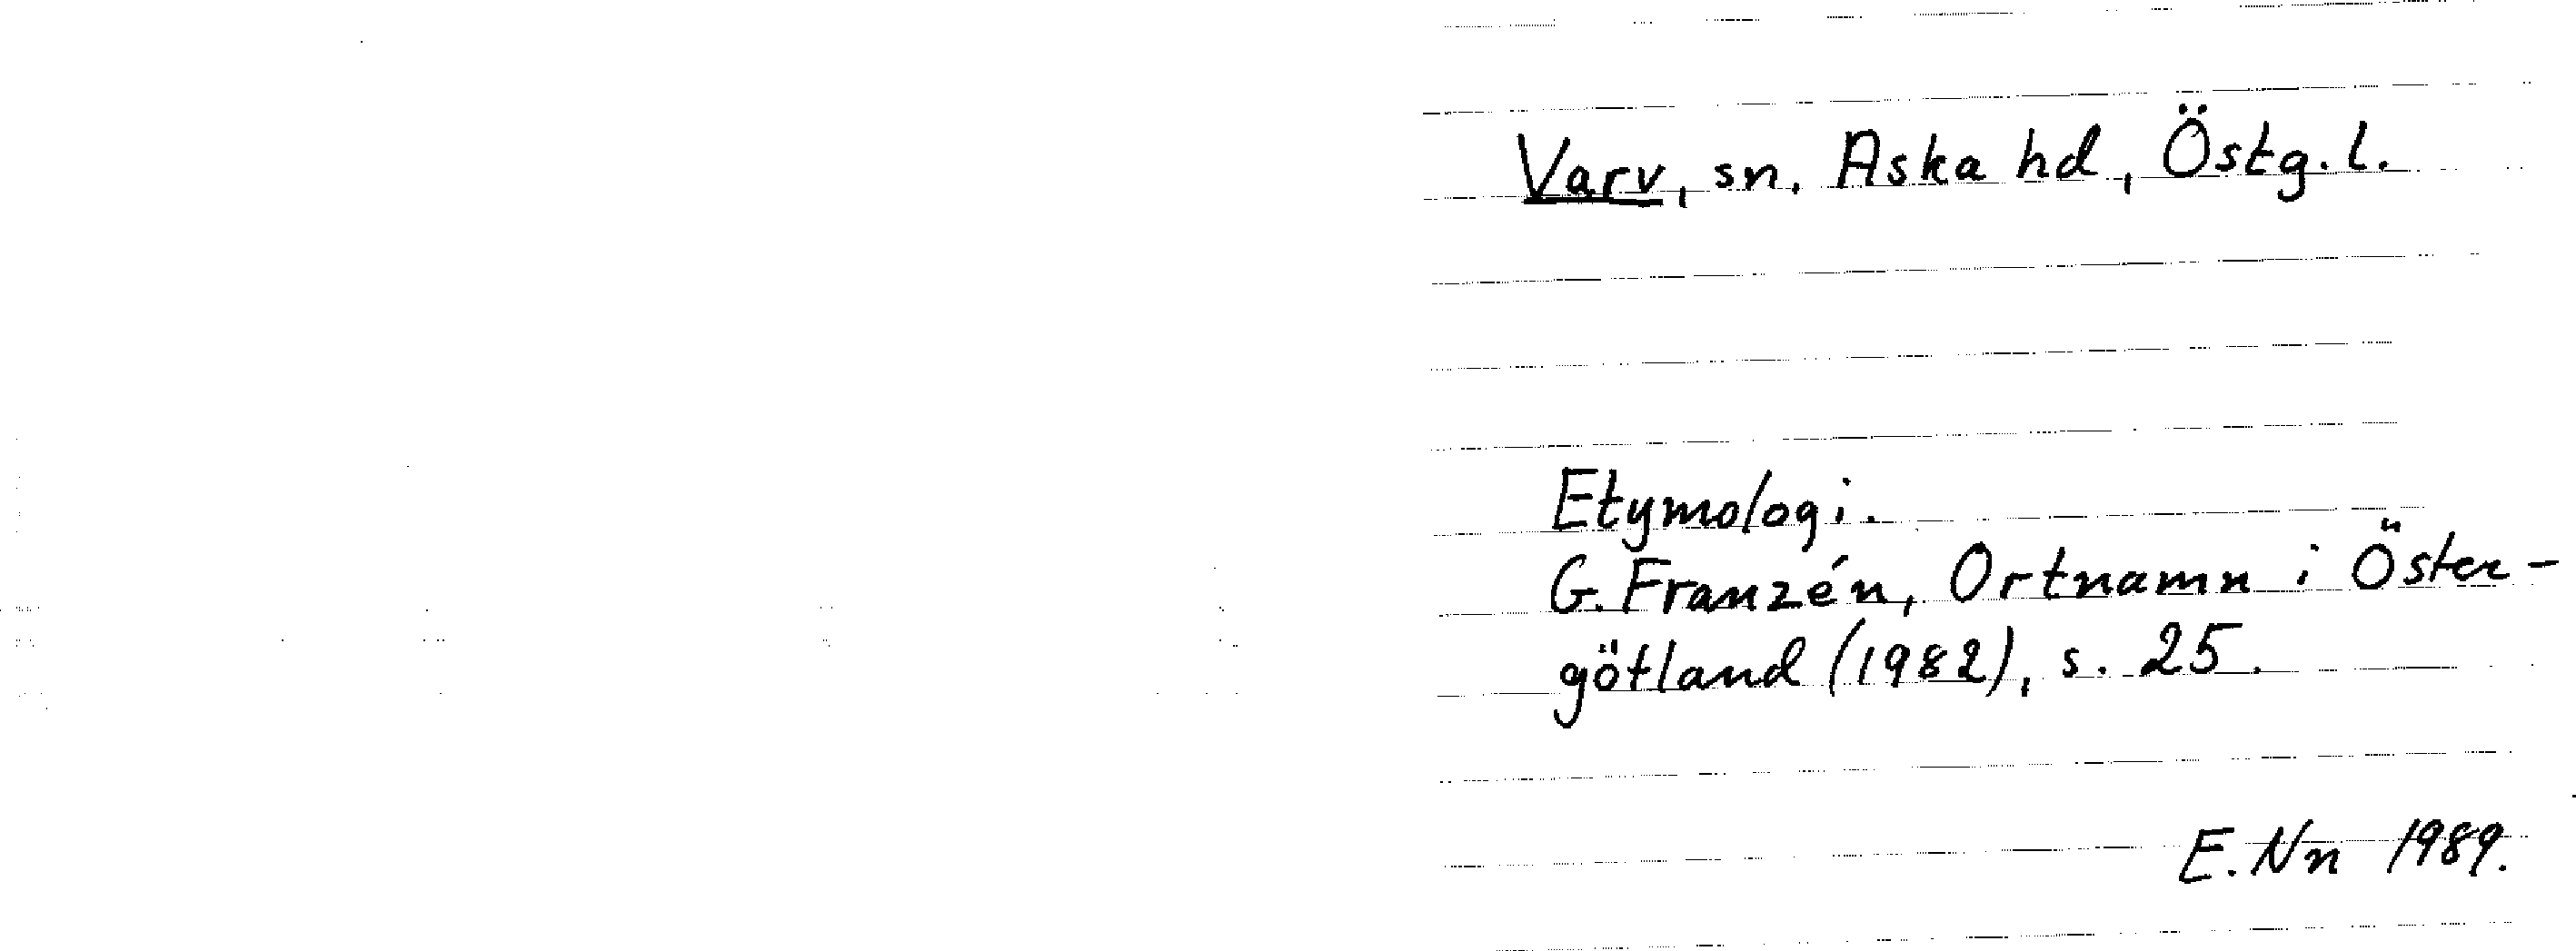 Varv, sn. Aska hd, Östg. l.
Etymologi.
G. Franzén, Ortnamn i Öster-
götland (1982), s. 25.
E. Nn 1989.